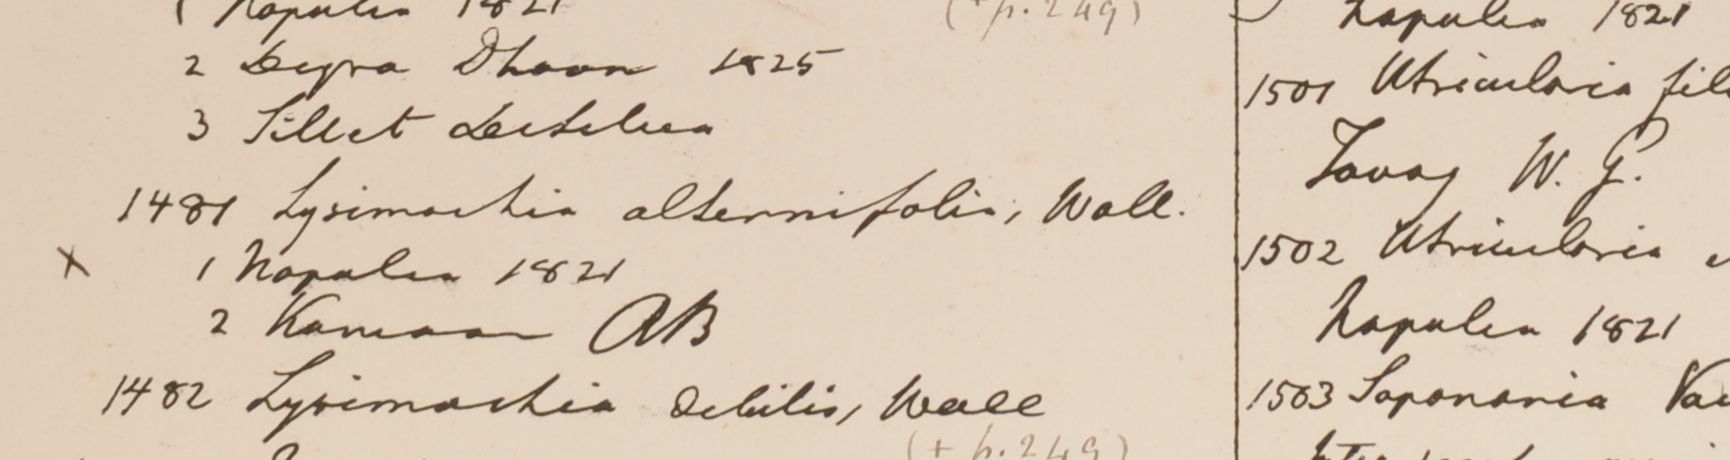 1 Napalia 1821 (+ p. 249)
2 Deyra Dhoon 1825
3 Sillet
1481 Lysimachia alternifolia, Wall.
x 1 Napalia 1821
2 Kamaon RB
1482 Lysimachia debilis, Wall
(+ p. 249)
Napalia 1821
1501 Utricularia
Tavoy W. G.
1502 Utricularia
Napalia 1821
1503 Saponaria